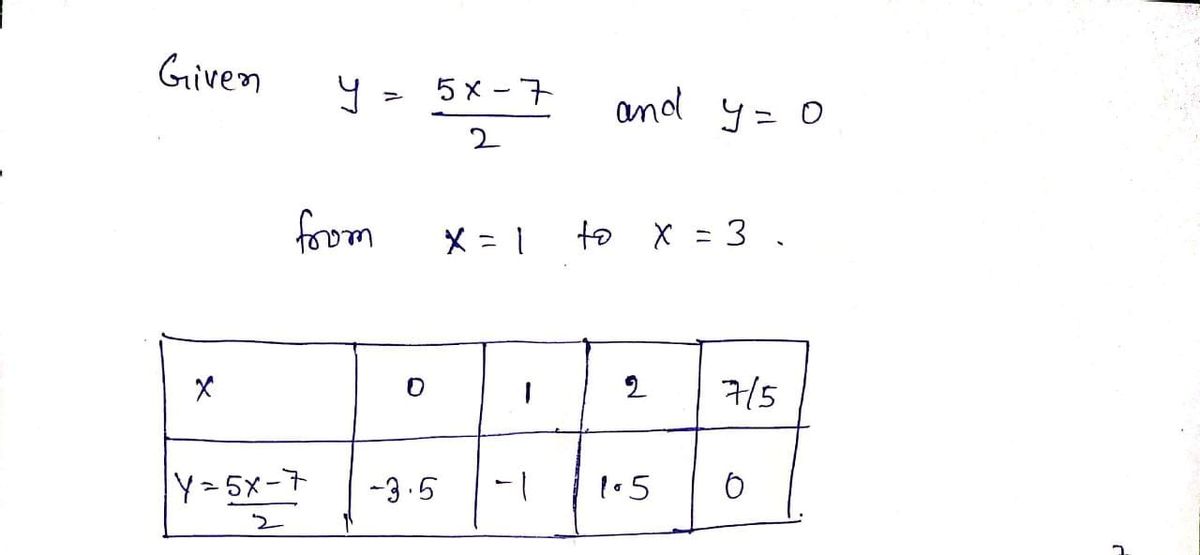 Given y = 5x-7/2 and y = 0
from x = 1 to x = 3 .
x 0 1 2 7/5
y = 5x-7/2 -3.5 -1 1.5 0